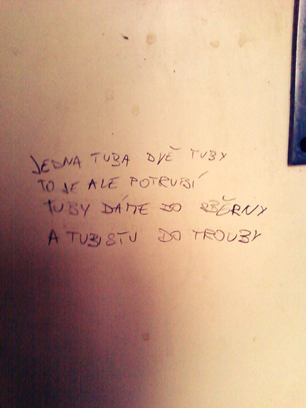 JEDNA TUBA DVĚ TUBY
TO JE ALE POTRUBÍ
TUBY DÁME DO SBĚRNY
A TUBISTU DO TROUBY